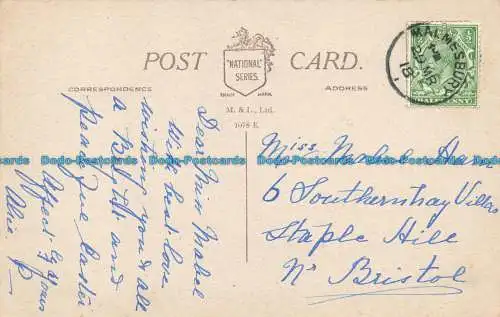 POST CARD.
"NATIONAL"
SERIES.
TRADE MARK.
CORRESPONDENCE
ADDRESS
M. & L., Ltd.
MALMESBURY
18
HALFPENNY
Dear Miss Mabel
With best love
wishing you & all
a Bright and
peaceful Easter
Affect ly yours
Alice P
Miss Mabel
6 Southernhay Villas
Staple Hill
Nr Bristol
Dodo-Postcards Dodo-Postcards Dodo-Postcards Dodo-Postcards Dodo-Postcards